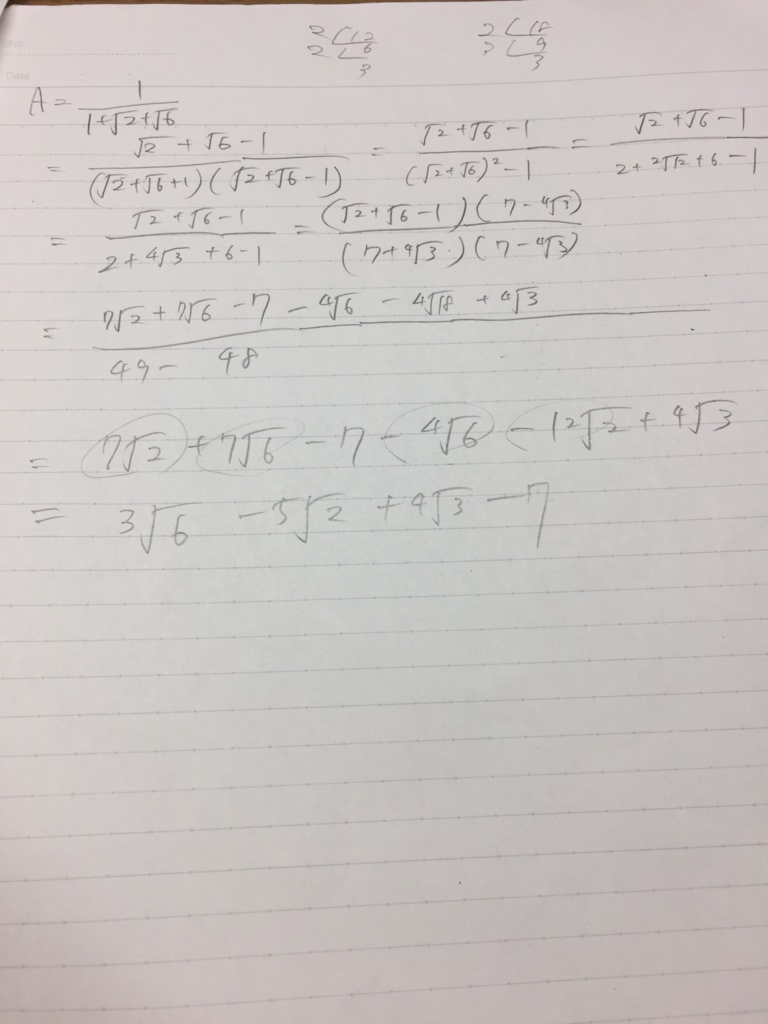 No.
Date
2 ∟12
2 ∟6
3
2 ∟18
3 ∟9
3
A = 1/(1+√2+√6)
= (√2 + √6 - 1)/((√2+√6+1)(√2+√6-1)) = (√2+√6-1)/((√2+√6)² - 1) = (√2+√6-1)/(2+2√12+6-1)
= (√2+√6-1)/(2+4√3+6-1) = ((√2+√6-1)(7-4√3))/((7+4√3)(7-4√3))
= (7√2+7√6-7-4√6-4√18+4√3)/(49-48)
= 7√2+7√6-7-4√6-12√2+4√3
= 3√6-5√2+4√3-7